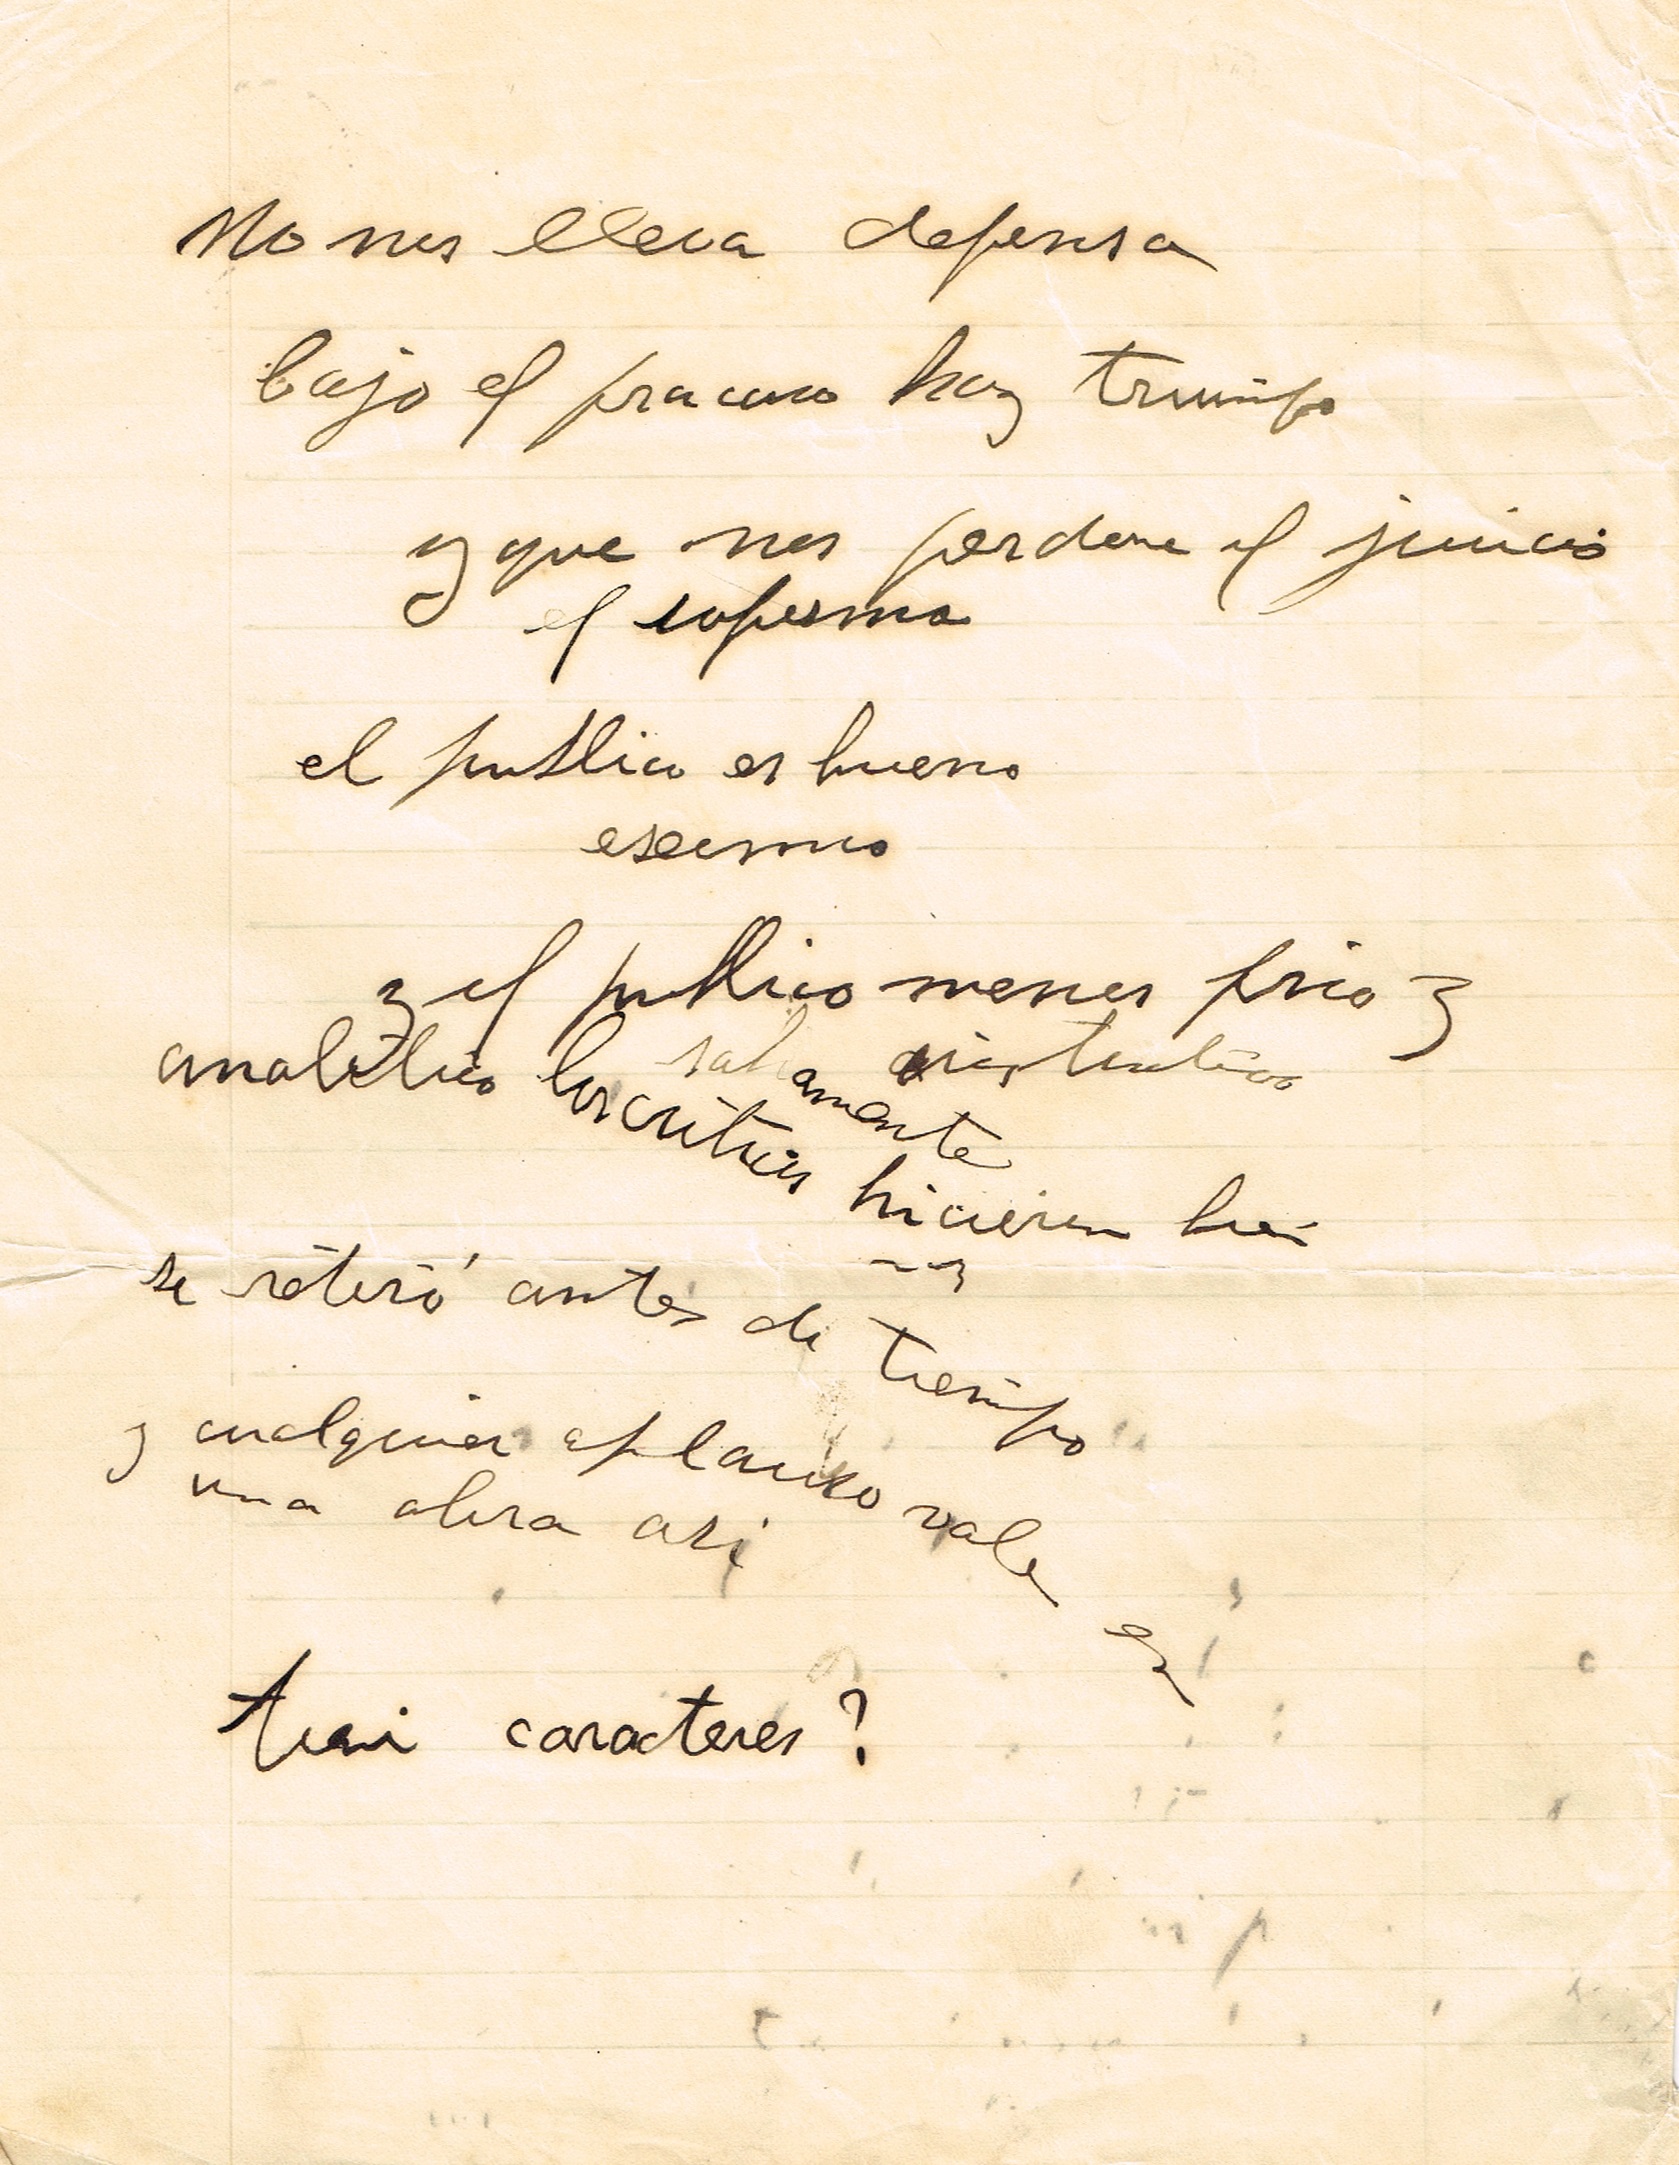 No nos lleva defensa
bajo el fracaso hay triunfo
y que nos perdone el juicio
el sofisma
el publico es bueno
y el publico menos frio y
analitico los criticos hicieron bien
sanamente
se retiró antes de tiempo
y cualquier aplauso vale en
una obra asi
caracteres?